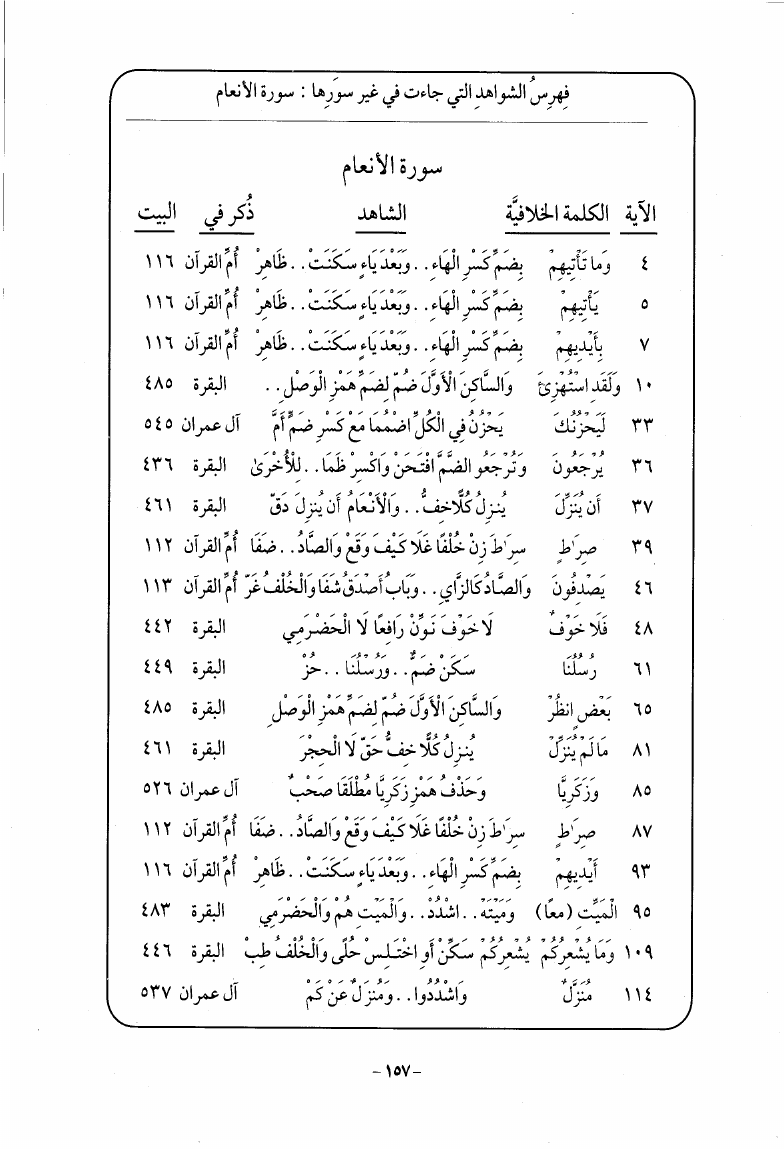 فِهرِسُ الشواهدِ التي جاءت في غير سوَرِها : سورة الأنعام
سورة الأنعام
الآية الكلمة الخلافيَّة الشاهد ذُكر في البيت
٤ وَما تَأْتِيهِمْ بِضَمِّ كَسْرِ الْهَاءِ . . وَبَعْدَ يَاءٍ سَكَنَتْ . . ظَاهِرْ أُمِّ القرآن ١١٦
٥ يَأْتِيهِمْ بِضَمِّ كَسْرِ الْهَاءِ . . وَبَعْدَ يَاءٍ سَكَنَتْ . . ظَاهِرْ أُمِّ القرآن ١١٦
٧ بِأَيْدِيهِمْ بِضَمِّ كَسْرِ الْهَاءِ . . وَبَعْدَ يَاءٍ سَكَنَتْ . . ظَاهِرْ أُمِّ القرآن ١١٦
١٠ وَلَقَدِ اسْتُهْزِئَ وَالسَّاكِنَ الْأَوَّلَ ضُمّ لِضَمِّ هَمْزِ الْوَصْلِ . . البقرة ٤٨٥
٣٣ لَيَحْزُنُكَ يَحْزُنُ فِي الْكُلِّ اضْمُمَا مَعْ كَسْرِ ضَمٍّ أَمَّ آل عمران ٥٤٥
٣٦ يُرْجَعُونَ وَتُرْجَعُو الضَّمَّ افْتَحَنْ وَاكْسِرْ ظَمَا . . لِلْأُخْرَىٰ البقرة ٤٣٦
٣٧ أَن يُنَزِّلَ يُنزِلُ كُلًّا خِفُّ . . وَالْأَنْعَامُ أَن يُنزِلَ دَقّ البقرة ٤٦١
٣٩ صِرَٰطٍ سِرَٰطَ زِنْ خُلْفًا غَلَا كَيْفَ وَقَعْ وَالصَّادُ . . ضَفَا أُمِّ القرآن ١١٢
٤٦ يَصْدِفُونَ وَالصَّادُ كَالزَّايِ . . وَبَابُ أَصْدَقُ شَفَا وَالْخُلْفُ غَرّ أُمِّ القرآن ١١٣
٤٨ فَلَا خَوْفٌ لَا خَوْفَ نَوِّنْ رَافِعًا لَا الْحَضْرَمِي البقرة ٤٤٢
٦١ رُسُلُنَا سَكَنْ ضَمٌّ . . وَرُسْلُنَا . . حُزْ البقرة ٤٤٩
٦٥ بَعْضٍ انظُرْ وَالسَّاكِنَ الْأَوَّلَ ضُمّ لِضَمِّ هَمْزِ الْوَصْلِ البقرة ٤٨٥
٨١ مَا لَمْ يُنَزِّلْ يُنزِلُ كُلًّا خِفُّ حَقّ لَا الْحِجْرَ البقرة ٤٦١
٨٥ وَزَكَرِيَّا وَحَذْفُ هَمْزِ زَكَرِيَّا مُطْلَقَا صَحْبٌ آل عمران ٥٢٦
٨٧ صِرَٰطٍ سِرَٰطَ زِنْ خُلْفًا غَلَا كَيْفَ وَقَعْ وَالصَّادُ . . ضَفَا أُمِّ القرآن ١١٢
٩٣ أَيْدِيهِمْ بِضَمِّ كَسْرِ الْهَاءِ . . وَبَعْدَ يَاءٍ سَكَنَتْ . . ظَاهِرْ أُمِّ القرآن ١١٦
٩٥ الْمَيِّتِ (معًا) وَمَيْتَةً . . اشْدُدْ . . وَالْمَيْتِ هُمْ وَالْحَضْرَمِي البقرة ٤٨٣
١٠٩ وَمَا يُشْعِرُكُمْ يُشْعِرُكُمْ سَكِّنْ أَوِ اخْتَلِسْ حُلًى وَالْخُلْفُ طِبْ البقرة ٤٤٦
١١٤ مُنَزَّلٌ وَاشْدُدُوا . . وَمُنْزَلٌ عَنْ كَمْ آل عمران ٥٣٧
-١٥٧-